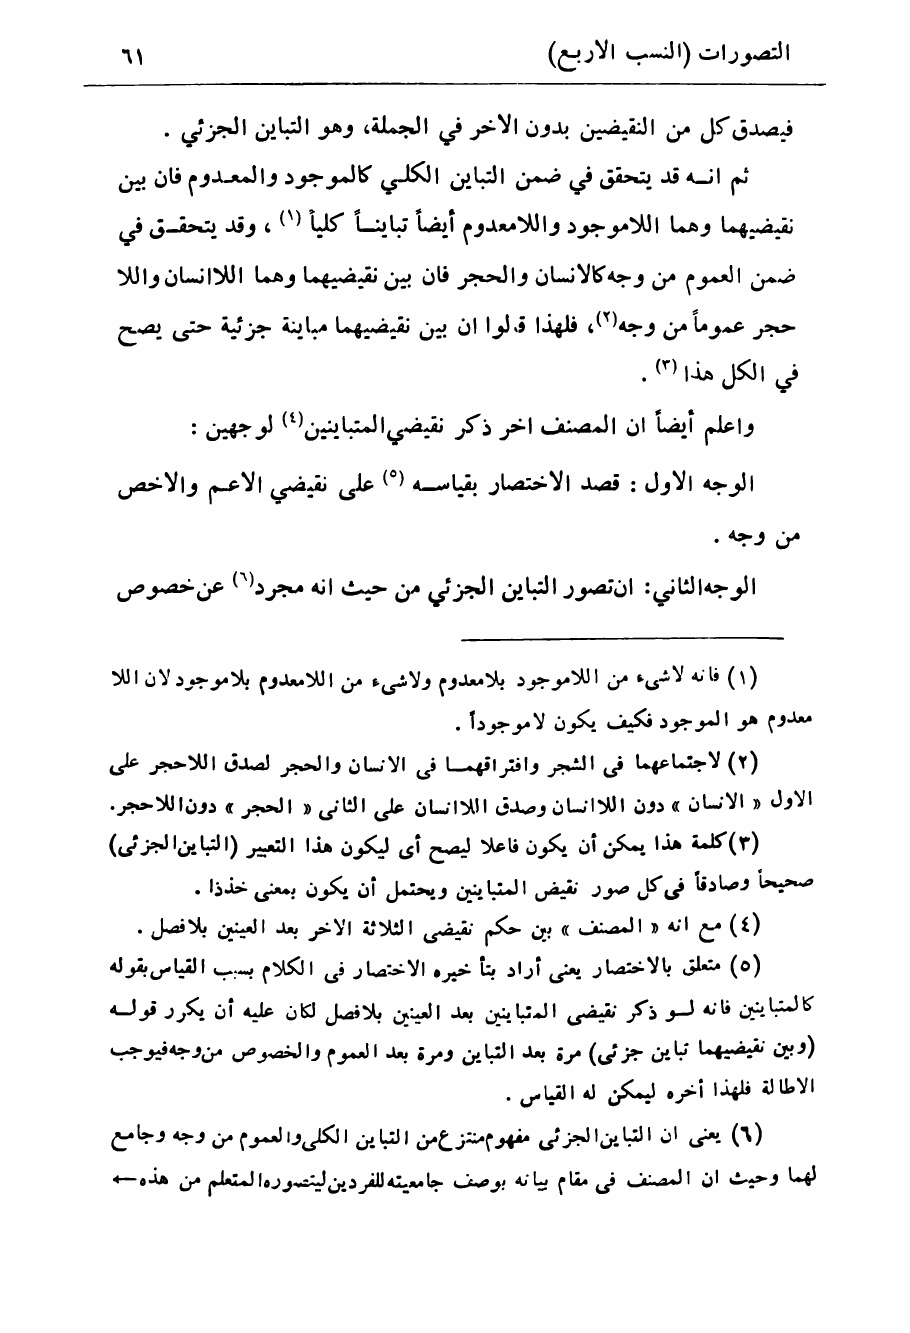 التصورات (النسب الاربع) ٦١
فيصدق كل من النقيضين بدون الاخر في الجملة، وهو التباين الجزئي .
ثم انـه قد يتحقق في ضمن التباين الكلي كالموجود والمعـدوم فان بين
نقيضيهما وهما اللاموجود واللامعدوم أيضاً تباينـاً كلياً (١) ، وقد يتحقـق في
ضمن العموم من وجه كالانسان والحجر فان بين نقيضيهما وهما اللاانسان واللا
حجر عموماً من وجه(٢)، فلهذا قالوا ان بين نقيضيهما مباينة جزئية حتى يصح
في الكل هذا (٣) .
واعلم أيضاً ان المصنف اخر ذكر نقيضي المتباينين(٤) لوجهين :
الوجه الاول : قصد الاختصار بقياسـه (٥) على نقيضي الاعـم والاخص
من وجه .
الوجه الثاني: ان تصور التباين الجزئي من حيث انه مجرد(٦) عن خصوص
(١) فانه لاشىء من اللاموجود بلامعدوم ولاشىء من اللامعدوم بلاموجود لان اللا
معدوم هو الموجود فكيف يكون لاموجوداً .
(٢) لاجتماعهما فى الشجر وافتراقهمـا فى الانسان والحجر لصدق اللاحجر على
الاول « الانسان » دون اللاانسان وصدق اللاانسان على الثانى « الحجر » دون اللاحجر.
(٣) كلمة هذا يمكن أن يكون فاعلا ليصح أى ليكون هذا التعبير (التباين الجزئى)
صحيحاً وصادقاً فى كل صور نقيض المتباينين ويحتمل أن يكون بمعنى خذذا .
(٤) مع انه « المصنف » بين حكم نقيضى الثلاثة الاخر بعد العينين بلافصل .
(٥) متعلق بالاختصار يعنى أراد بتأخيره الاختصار فى الكلام بسبب القياس بقوله
كالمتباينين فانه لـو ذكر نقيضى المتباينين بعد العينين بلافصل لكان عليه أن يكرر قولـه
(وبين نقيضيهما تباين جزئى) مرة بعد التباين ومرة بعد العموم والخصوص من وجه فيوجب
الاطالة فلهذا أخره ليمكن له القياس .
(٦) يعنى ان التباين الجزئى مفهوم منتزع من التباين الكلى والعموم من وجه وجامع
لهما وحيث ان المصنف فى مقام بيانه بوصف جامعيته للفردين ليتصوره المتعلم من هذه ←